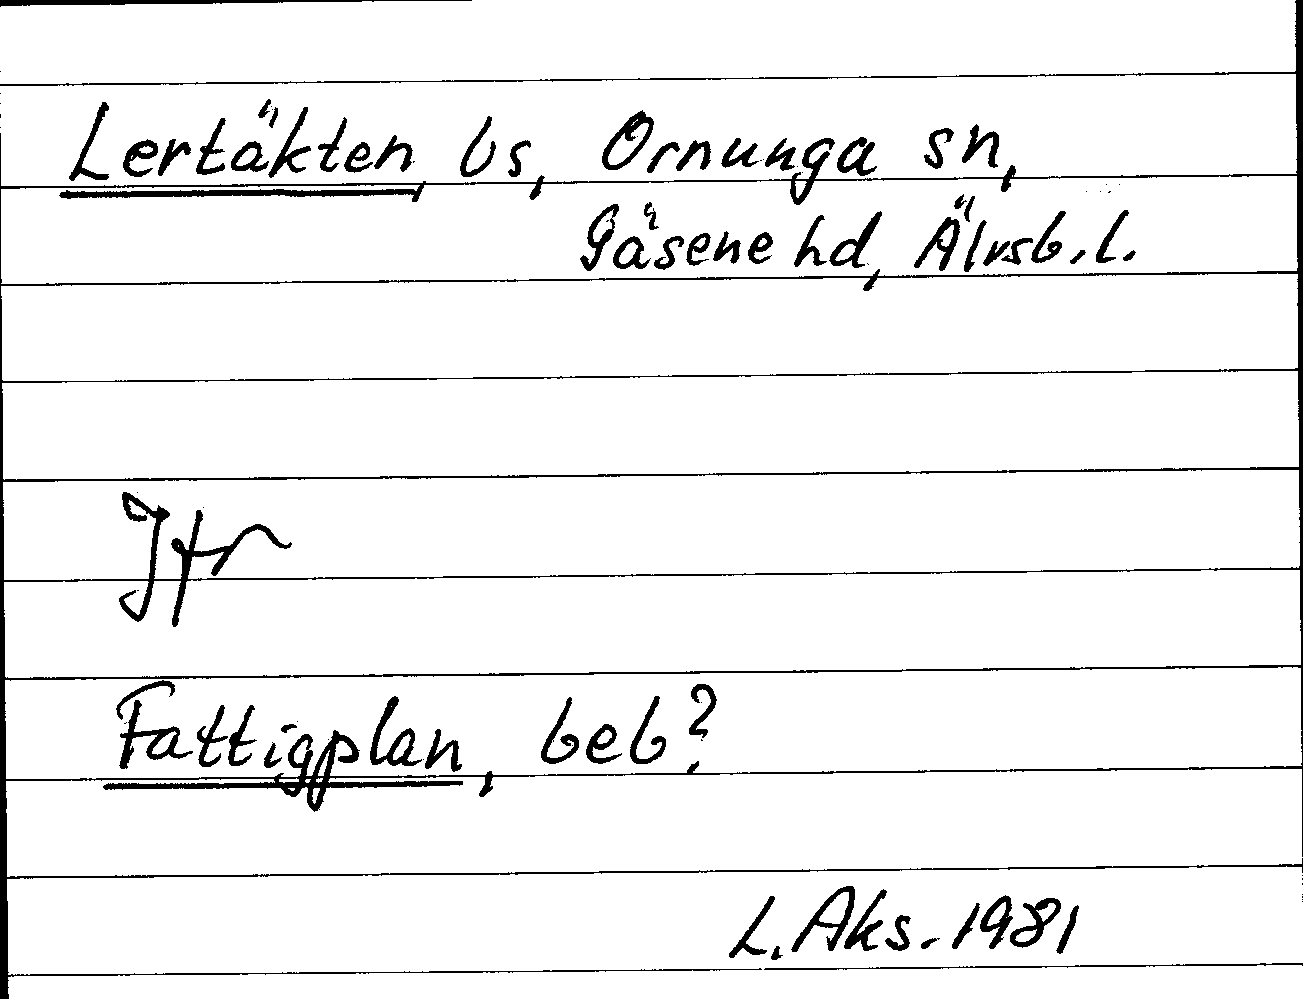 Lertäkten, bs, Ornunga sn,
Gäsene hd, Älvsb. l.
Jfr
Fattigplan, beb?
L. Aks. 1981